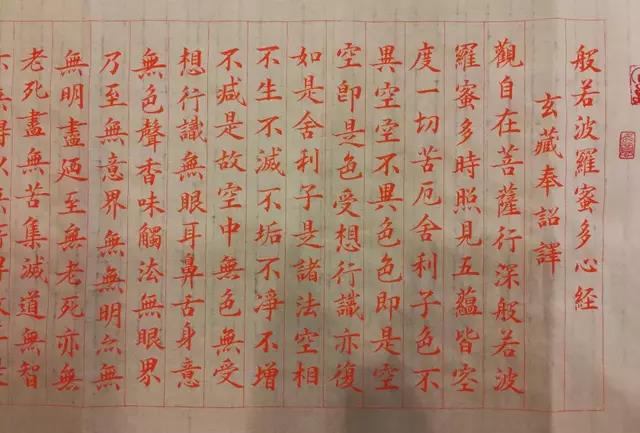 般若波羅蜜多心經
玄藏奉詔譯
觀自在菩薩行深般若波
羅蜜多時照見五蘊皆空
度一切苦厄舍利子色不
異空空不異色色即是空
空卽是色受想行識亦復
如是舍利子是諸法空相
不生不滅不垢不淨不增
不減是故空中無色無受
想行識無眼耳鼻舌身意
無色聲香味觸法無眼界
乃至無意界無無明亦無
無明盡廼至無老死亦無
老死盡無苦集滅道無智